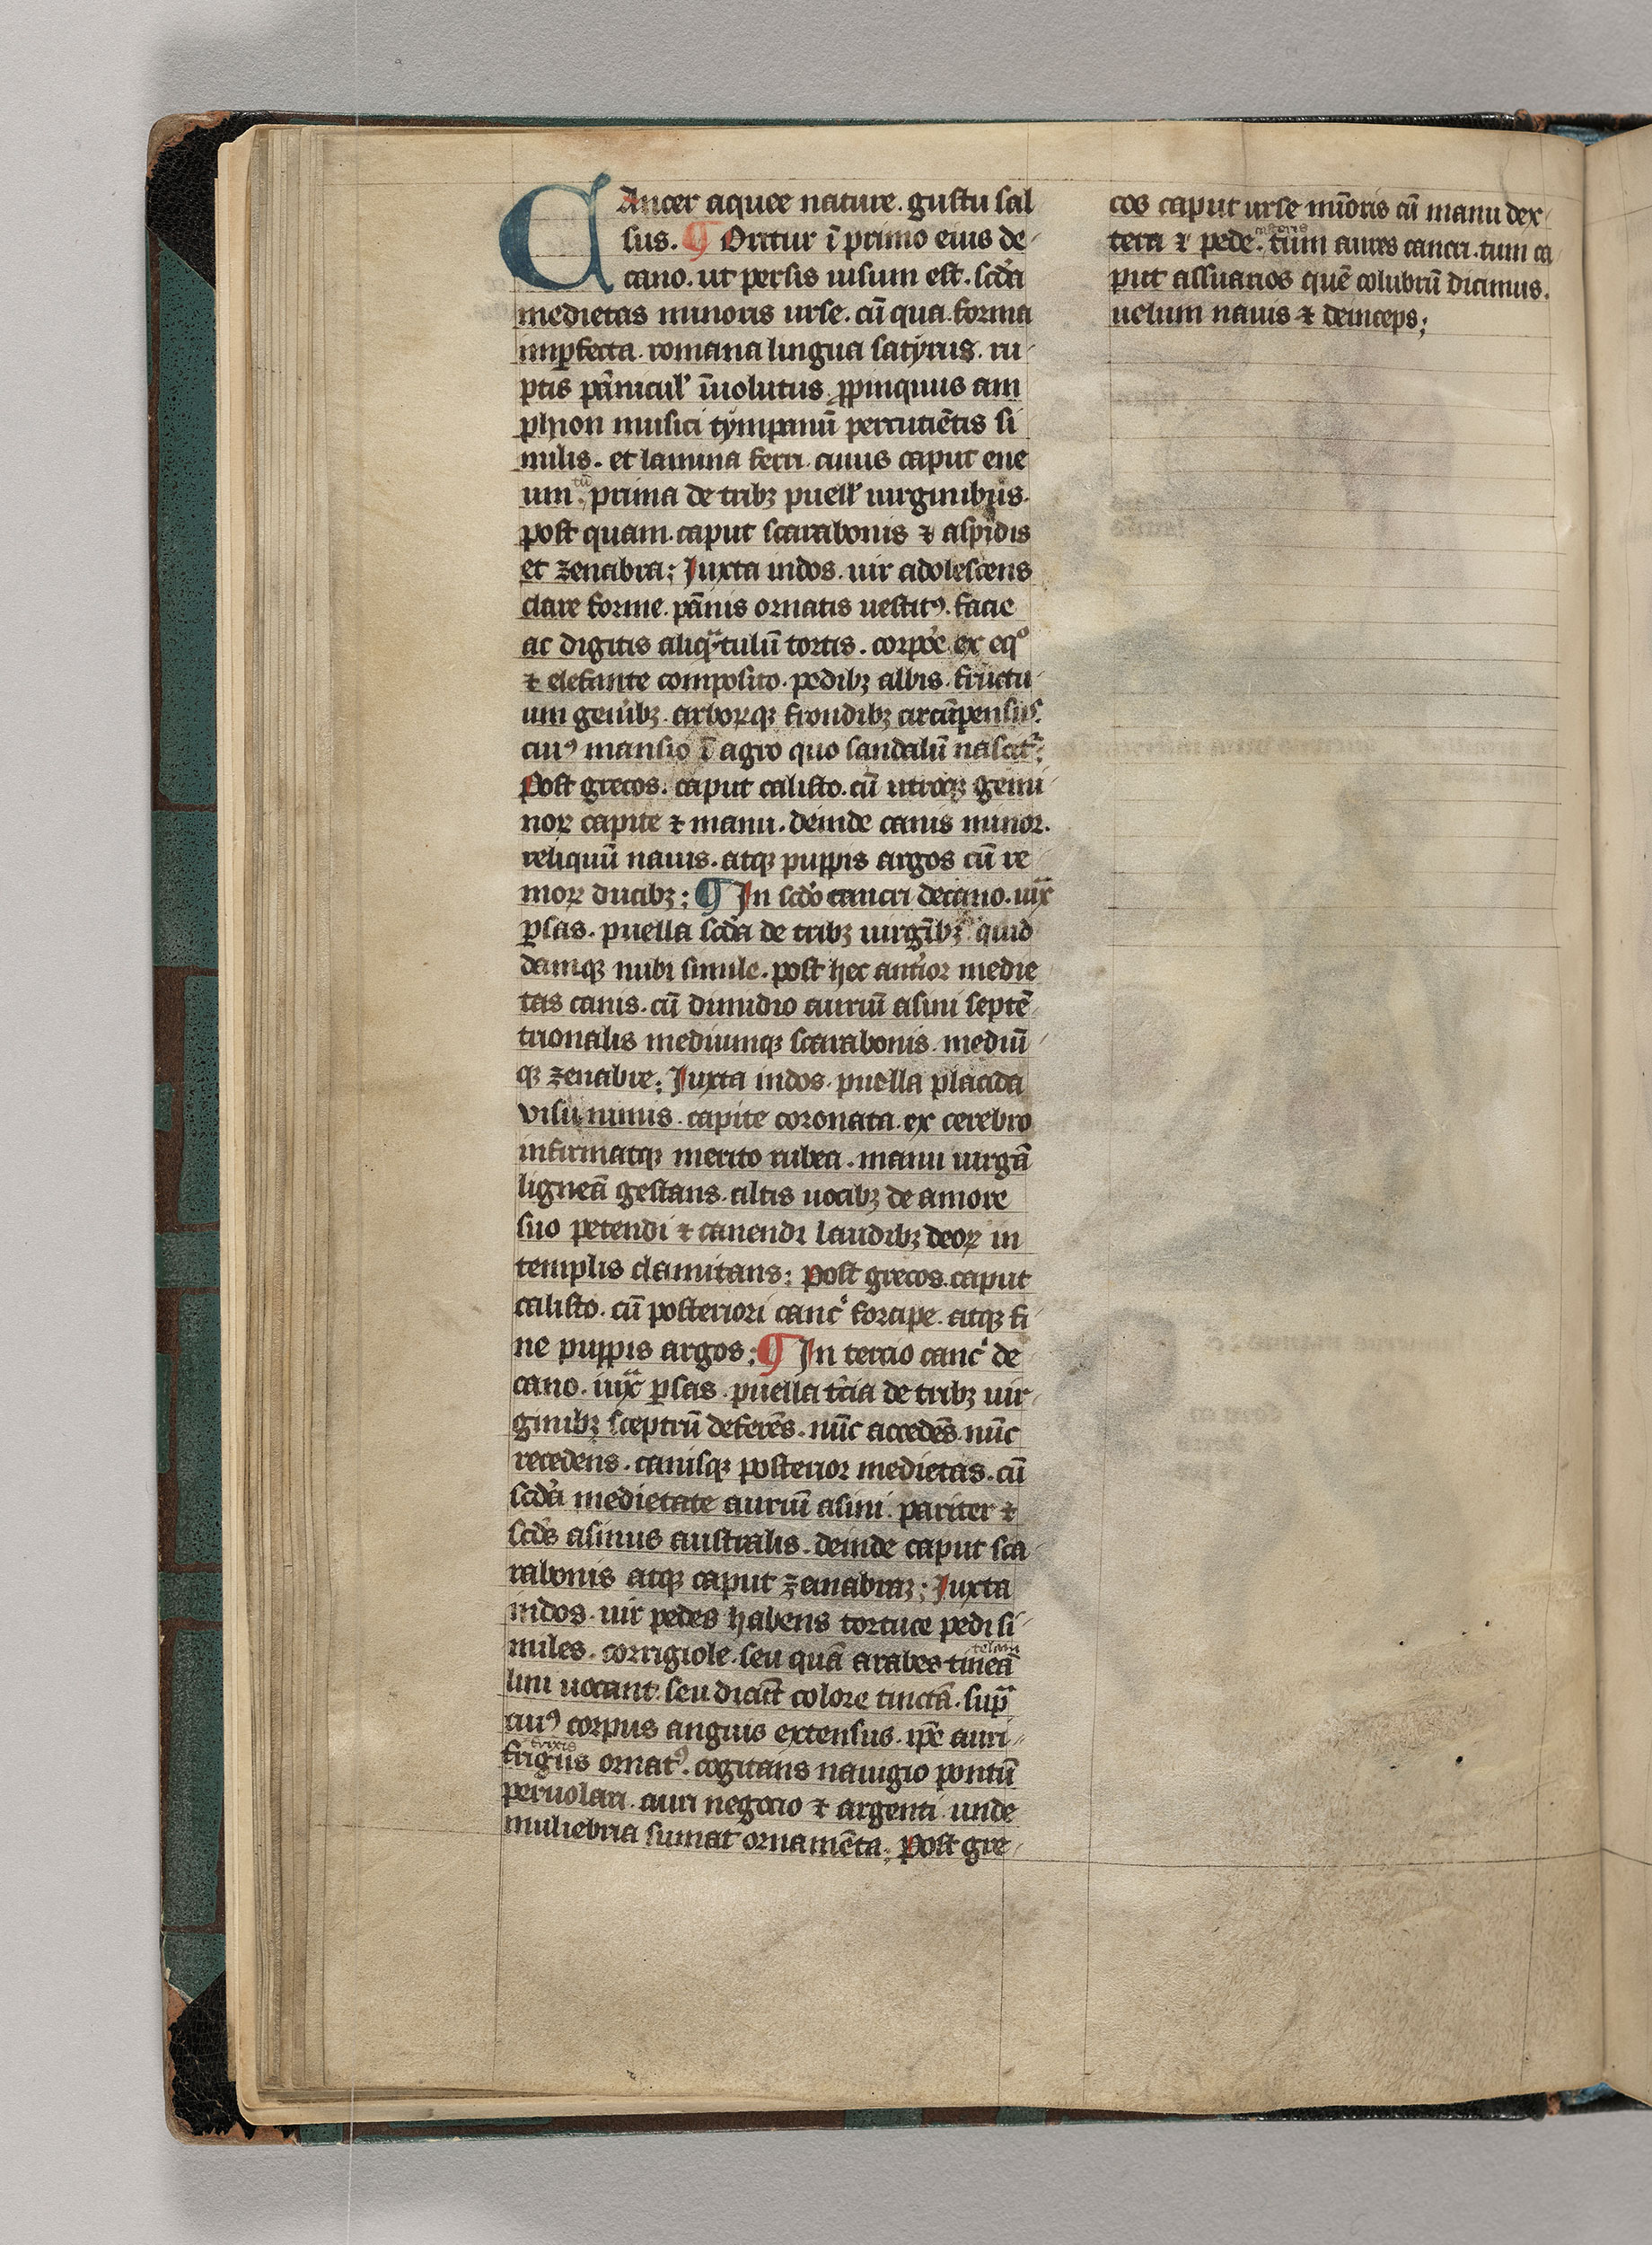 CAncer aquee nature. gustu sal
sus. ¶ Oritur ī primo eius de-
cano. ut persis uisum est. scd̄a
medietas minoris urse. cū qua forma
imꝑfecta. romana lingua satyrus. ru-
ptis pānicul' īuolutus. ꝓpinquus am
phion musici tympanū percutiētis si
milis. et lamina ferri. cuius caput ene
um. tū prima de tribꝫ puell' uirginibus.
post quam. caput scarabonis ⁊ aspidis
et zenabra; Iuxta indos. uir adolescens
clare forme. pānis ornatis uestitꝰ. facie
ac digitis aliqᵃtulū tortis. corpōe ex eqº
⁊ elefante composito. pedibꝫ albis. fructu-
um genībꝫ. arborꝗꝫ frondibꝫ circūpensus.
cuiꝰ mansio ī agro quo sandalū nascit᷑;
Post grecos. caput calisto. cū utroqꝫ gemi-
noꝝ capite ⁊ manu. deinde canis minor.
reliquū nauis. atqꝫ puppis argos cū re-
moꝝ ducibꝫ; ¶ In scd̄o cancri decano. iuxᵃ
ꝑsas. puella scd̄a de tribꝫ uirgīibꝫ quid
damqꝫ nubi simile. post hec ant̄ior medie
tas canis. cū dimidio auriū asini septē-
trionalis mediumqꝫ scarabonis. mediū-
qꝫ zenabre; Iuxta indos. puella placida
visu nimis. capite coronata. ex cerebro
infirmatqꝫ merito rubea. manu uirgā
ligneā gestans. altis uocibꝫ de amore
suo petendi ⁊ canendi laudibꝫ deoꝝ in
templis clamitans; Post grecos. caput
calisto. cū posteriori canc̄i forcipe. atqꝫ fi-
ne puppis argos; ¶ In tercio canc̄i de
cano. iuxᵃ ꝑsas. puella tc̄ia de tribꝫ uir-
ginibꝫ sceptrū deferēs. nūc accedēs. nūc
recedens. canisqꝫ posterior medietas. cū
scd̄a medietate auriū asini. pariter ⁊
scd̄s asinus australis. deinde caput sca-
rabonis atqꝫ caput zanabraꝫ; Iuxta
indos. uir pedes habens tortuce pedi si-
miles. corrigiole. seu quā arabes tineā telam
lini uocant. seu dicāt colore tinctā. supᵃ
cuiꝰ corpus anguis extensus. ip̄e auri-
frigiis trixis ornatꝰ. cogitans nauigio pontū
peruolari. auri negocio ⁊ argenti unde
muliebria sumat ornamēta; Post gre-
cos caput urse mīoris cū manu dex-
tera ⁊ pede. tum aures cancri. tum ca-
put assuarios quē colubrū dicimus.
uelum nauis ⁊ deinceps;